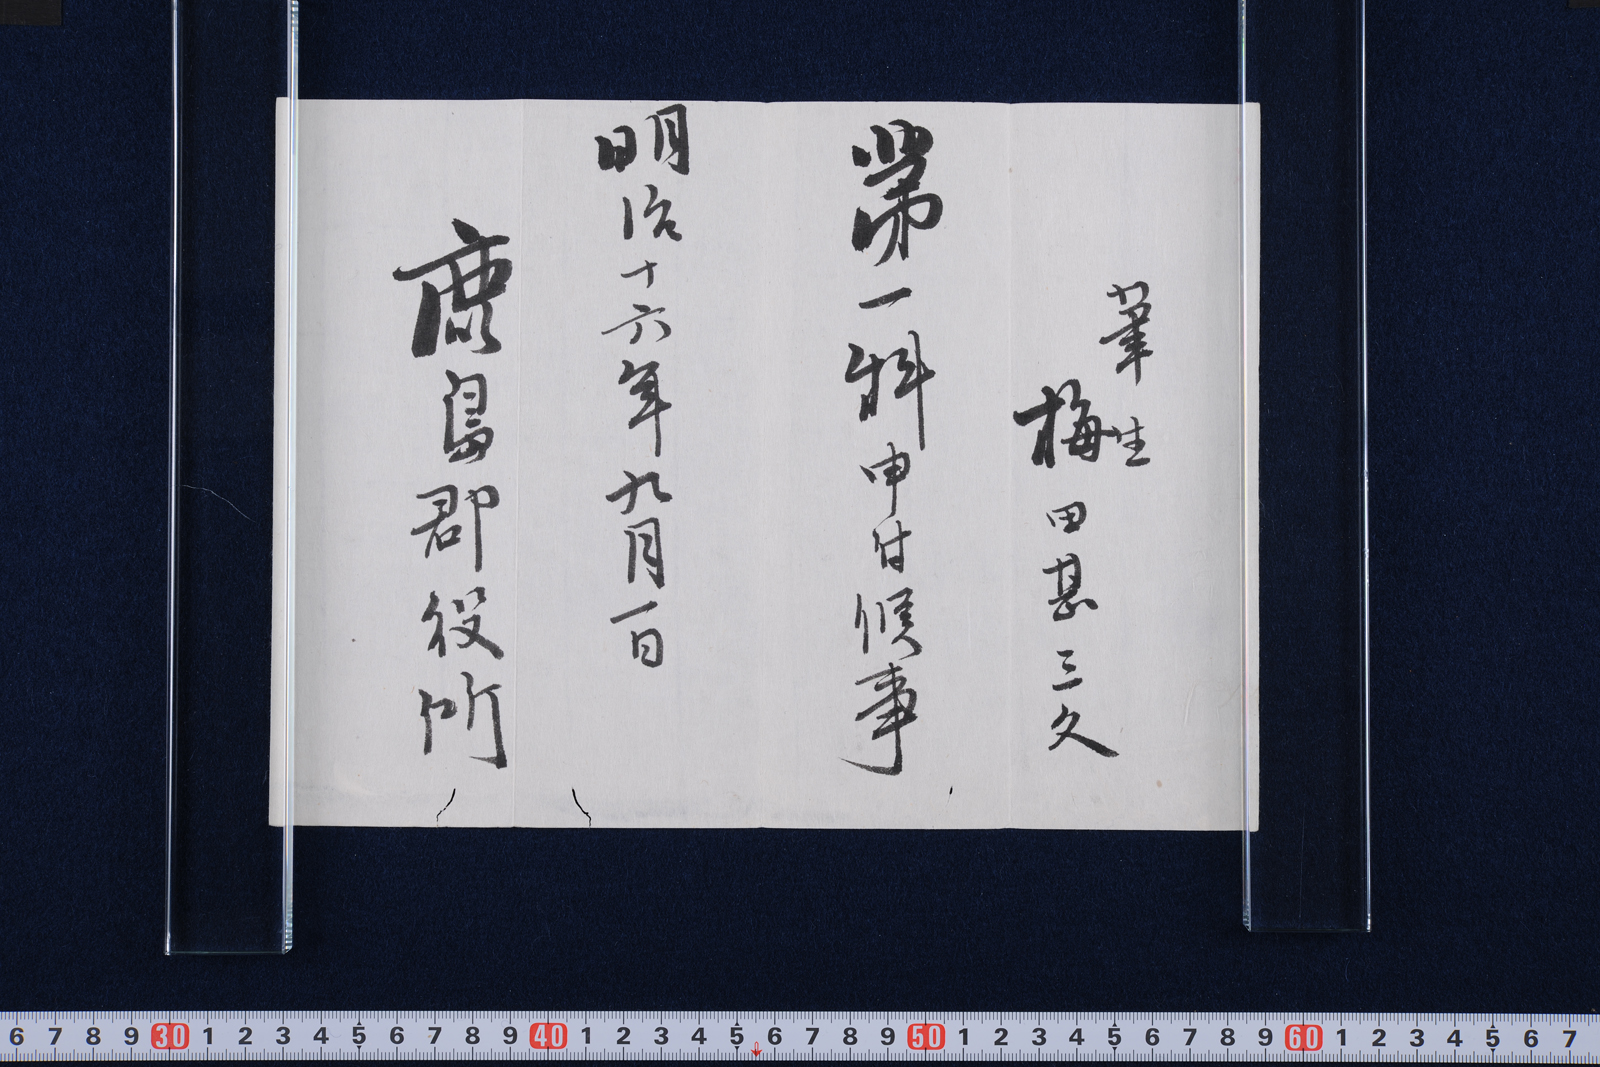 筆生
梅田甚三久
第一科申付候事
明治十六年九月一日
鹿島郡役所
6 7 8 9 30 1 2 3 4 5 6 7 8 9 40 1 2 3 4 5 6 7 8 9 50 1 2 3 4 5 6 7 8 9 60 1 2 3 4 5 6 7